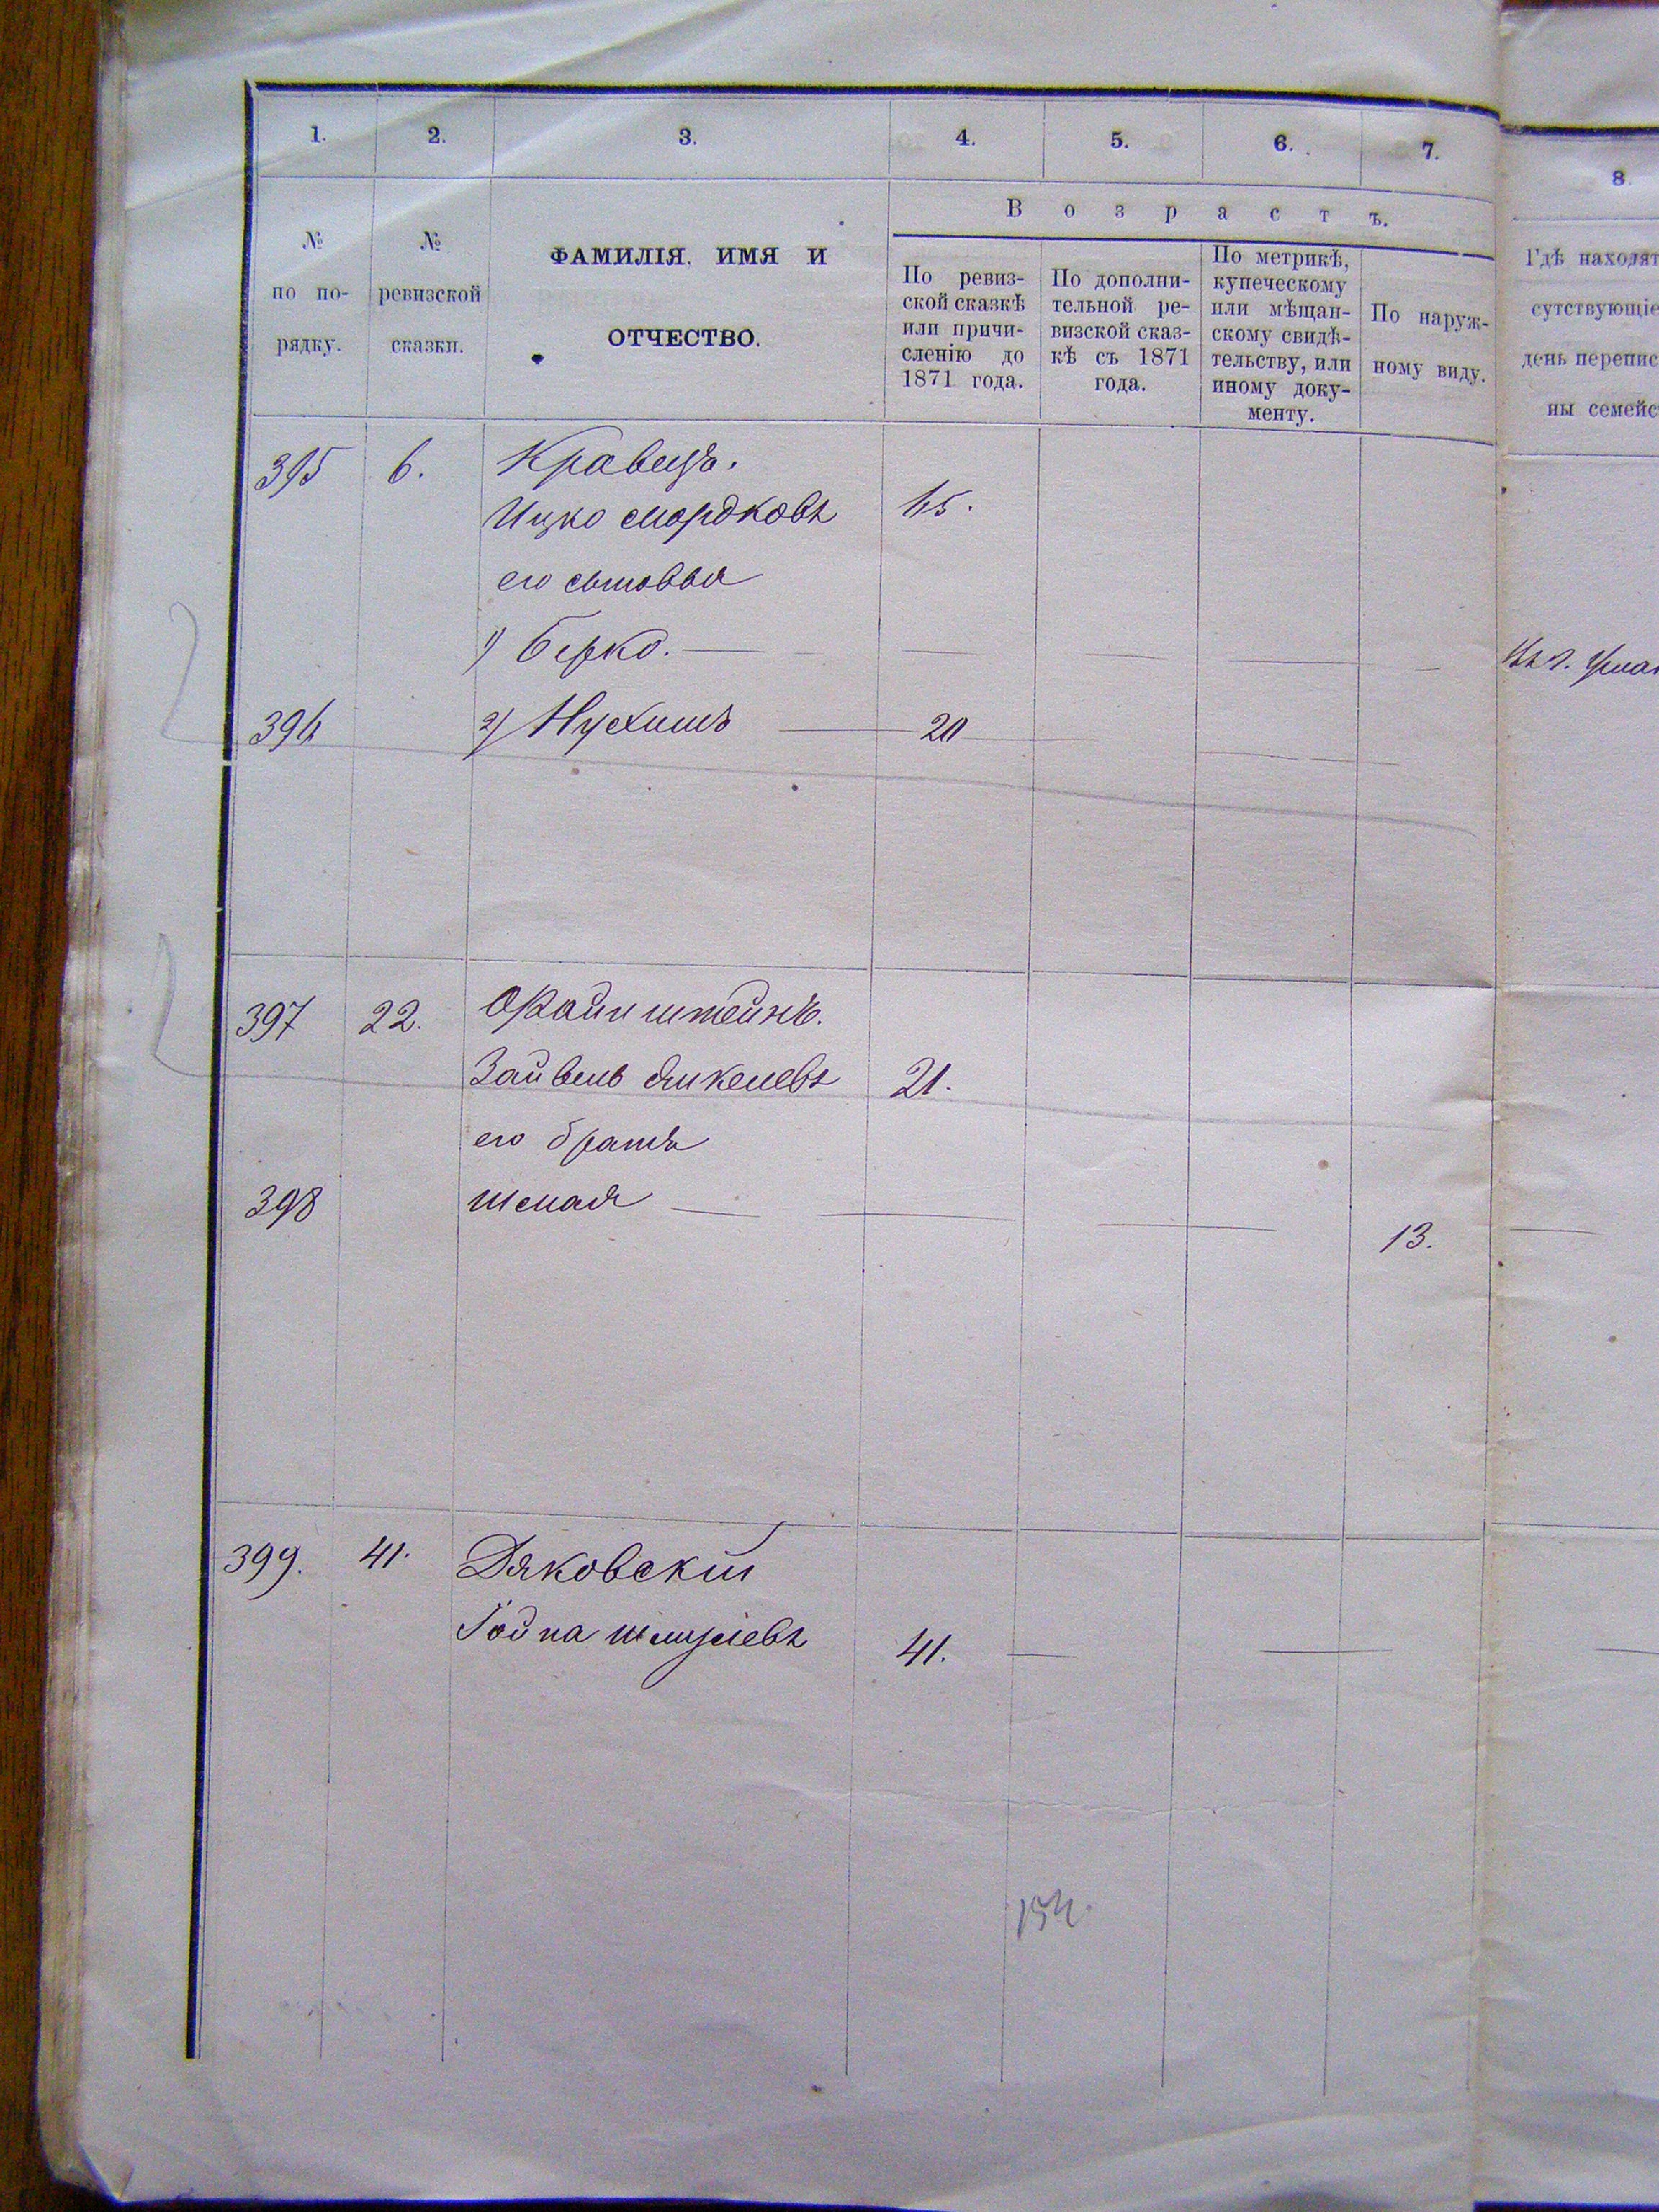 1. 2. 3. 4. 5. 6. 7. 8.
№ по по-рядку.
№ ревизской сказки.
ФАМИЛІЯ, ИМЯ И
ОТЧЕСТВО.
Возрастъ.
По ревиз-
ской сказкѣ
или причи-
сленію до
1871 года.
По дополни-
тельной ре-
визской сказ-
кѣ съ 1871
года.
По метрикѣ,
купеческому
или мѣщан-
скому свидѣ-
тельству, или
иному доку-
менту.
По наруж-
ному виду.
Гдѣ находят
сутствующіе
день перепис
ны семейс
395 6. Кравецъ.
Ицко Мордковъ 65.
его сыновья
1) Берко. —
396 2) Нухимъ — 20
397 22. Файнштейнъ.
Зайвель Янкелевъ 21.
его братъ
398 Шмая — 13.
399. 41. Дяковскій
Шмулевъ 41. —